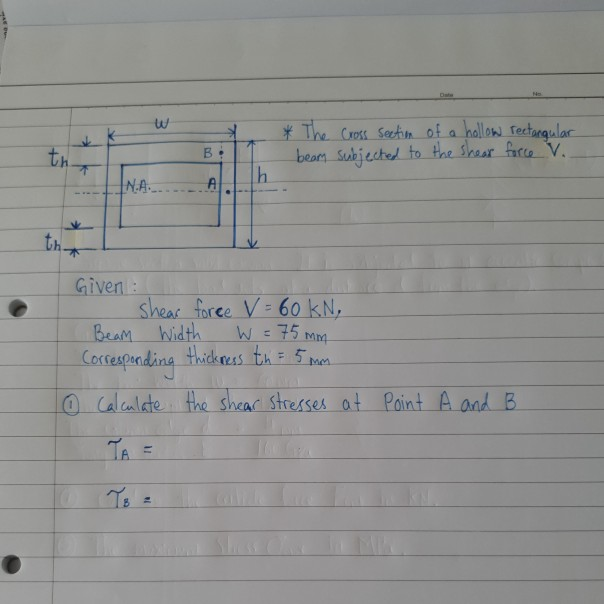 Date No.
w
* The Cross Section of a hollow rectangular
beam subjected to the shear force V.
th
B
h
N.A.
A
th
Given:
Shear force V = 60 kN,
Beam Width W = 75 mm
Corresponding thickness th = 5 mm
① Calculate the shear stresses at Point A and B
τA =
τB =